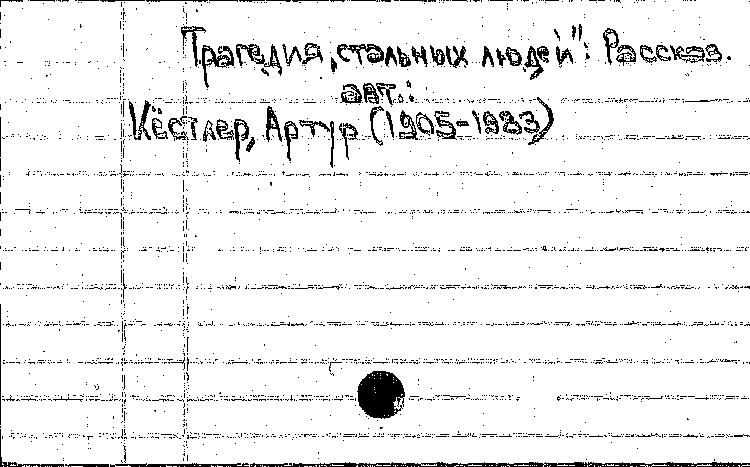 Трагедия „стальных людей": Рассказ.
авт.:
Кёстлер, Артур (1905-1983)